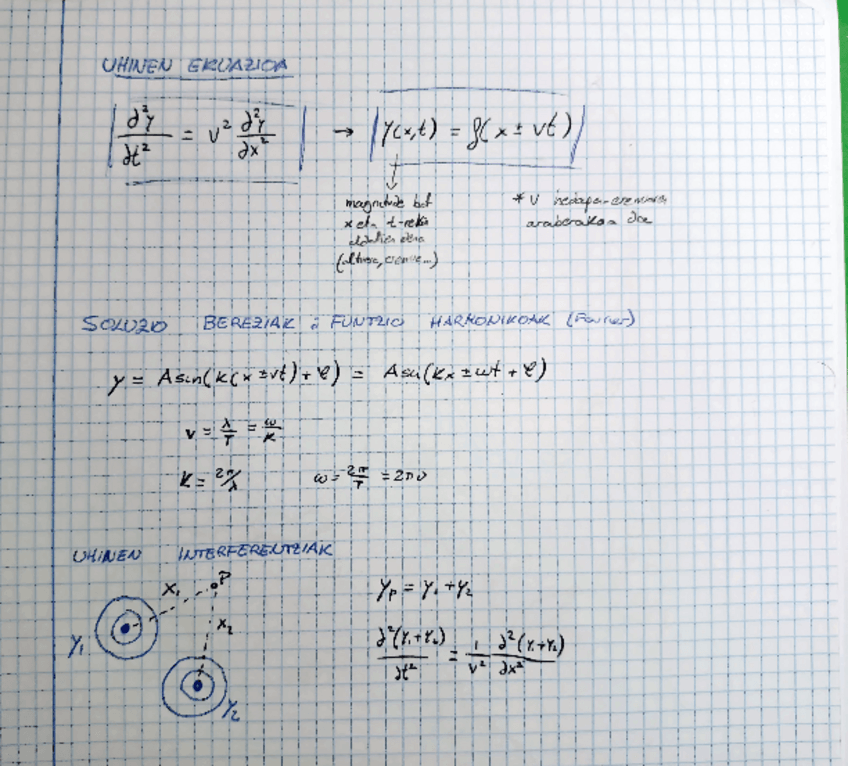 UHINEN EKUAZIOA
∂²y/∂t² = v² ∂²y/∂x² → y(x,t) = f(x ± vt)
magnitude bat
x eta t-rekin
aldatzen dena
* v hedapen-eremuaren
araberakoa da
SOLUZIO BEREZIAK : FUNTZIO HARMONIKOAK (Fourier)
y = A sin(k(x ± vt) + φ) = A sin(kx ± ωt + φ)
v = λ/T = ω/k
k = 2π/λ ω = 2π/T = 2πν
UHINEN INTERFERENTZIAK
x₁ P
x₂
y₁
y₂
yₚ = y₁ + y₂
∂²(y₁+y₂)/∂t² = 1/v² ∂²(y₁+y₂)/∂x²